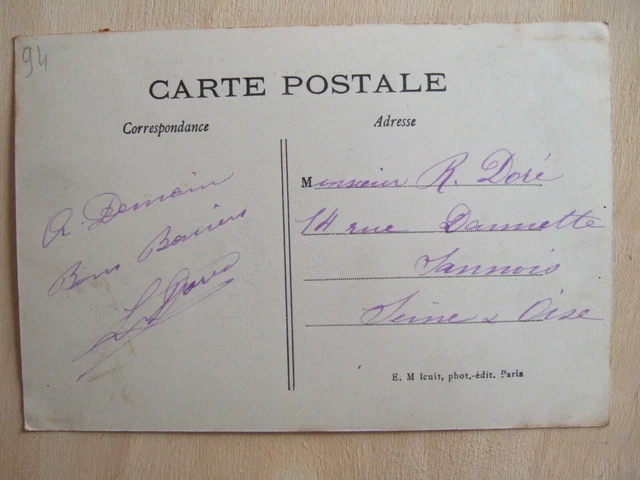 94
CARTE POSTALE
Correspondance
Adresse
A Demain
Bons Baisers
Monsieur R. Doré
14 rue Damette
Sannois
Seine & Oise
E. M lcuit, phot.-édit. Paris